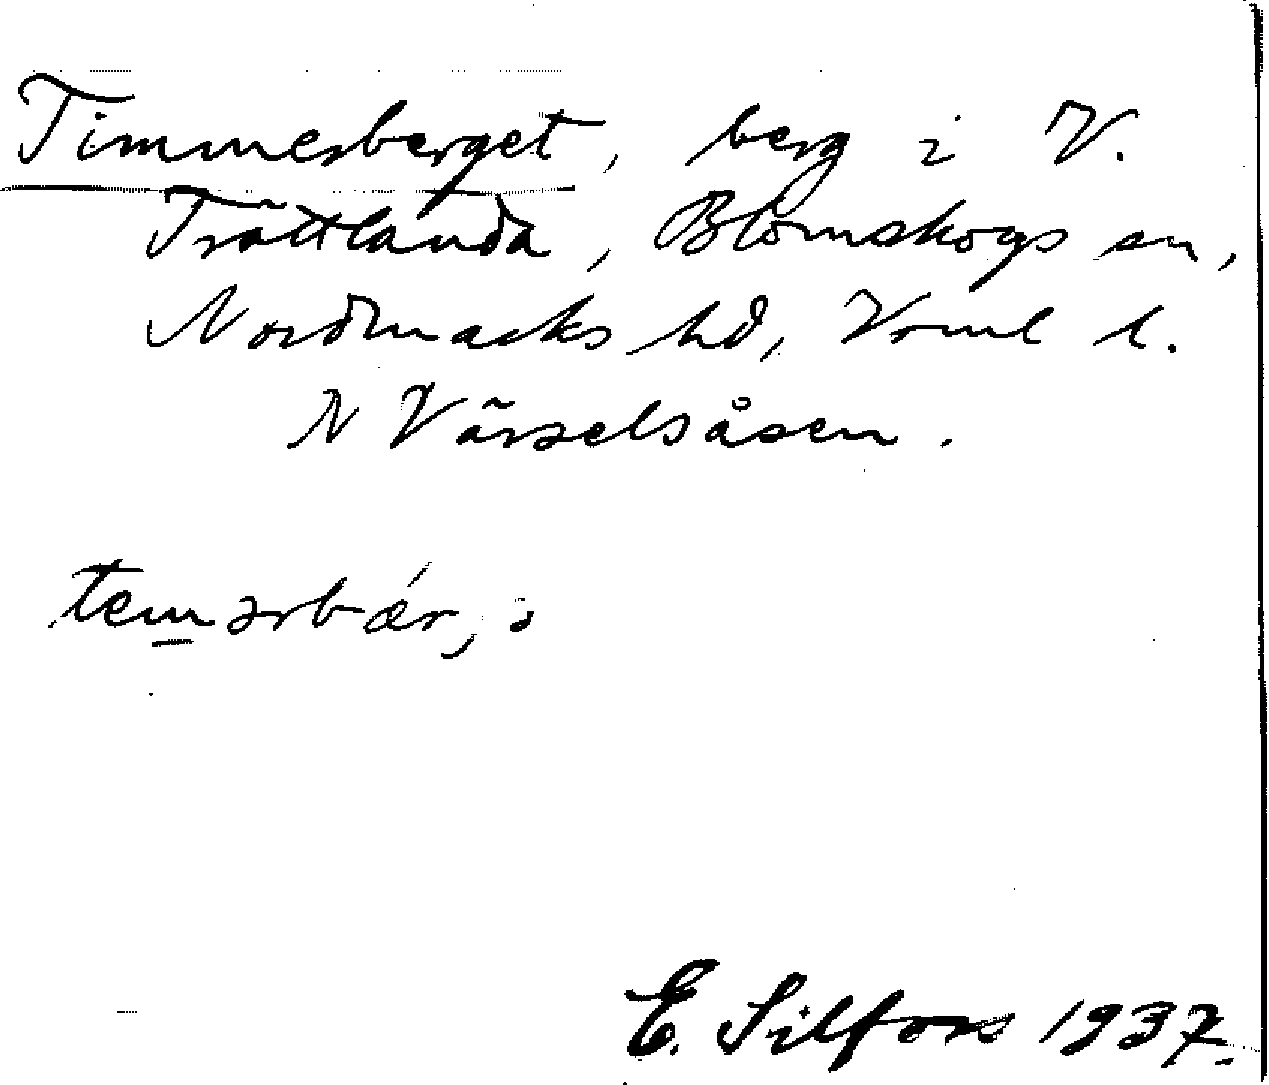 Timmerberget, berg i V.
Trättlanda, Blomskogs sn,
Nordmarks hd, Vrml l.
N Värselsåsen.
temərbǽr, ə
E. Silfors 1937.